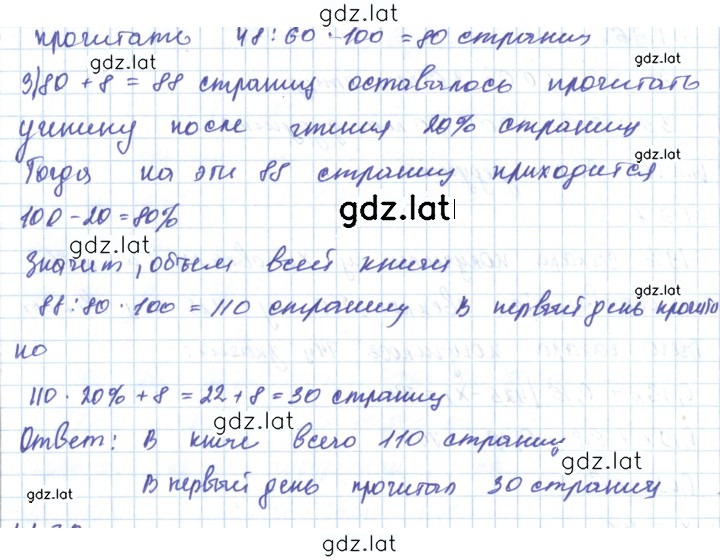 gdz.lat
прочитать 48 : 60 · 100 = 80 страниц
gdz.lat
3) 80 + 8 = 88 страниц оставалось прочитать
ученику после чтения 20% страниц
gdz.lat
Тогда на эти 88 страниц приходится
100 - 20 = 80%
gdz.lat
gdz.lat
Значит, объем всей книги
gdz.lat
88 : 80 · 100 = 110 страниц В первый день прочита
но
110 · 20% + 8 = 22 + 8 = 30 страниц
gdz.lat
Ответ: В книге всего 110 страниц
gdz.lat
В первый день прочитал 30 страниц
gdz.lat
gdz.lat